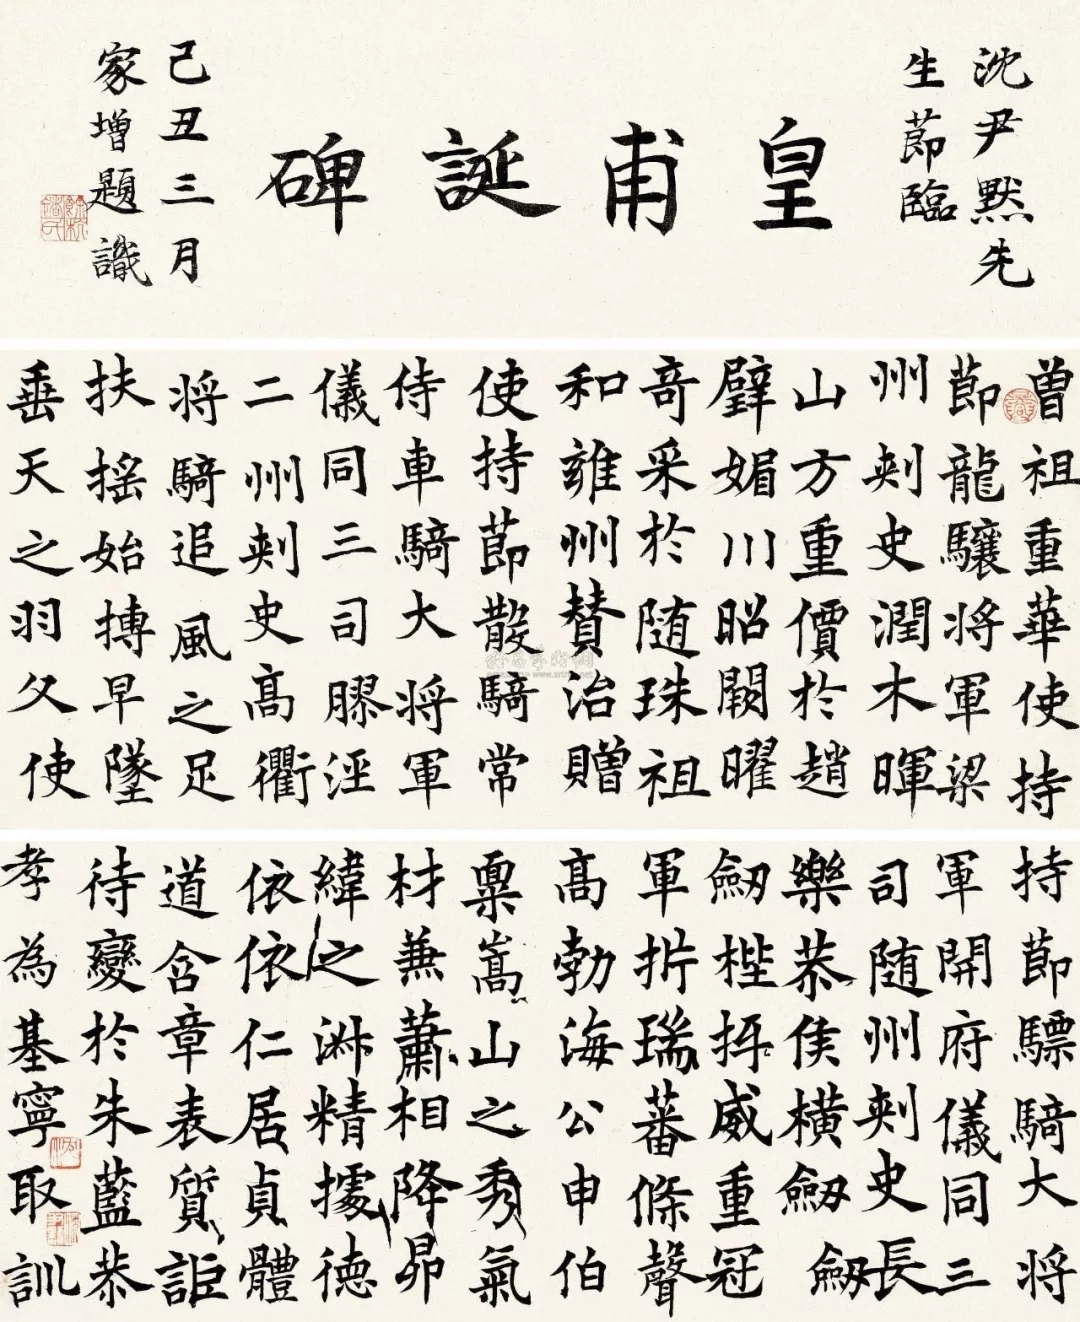 沈尹默先
生節臨
皇甫誕碑
己丑三月
家增題識
曾祖重華使持
節龍驤將軍梁
州刺史潤木暉
山方重價於趙
璧媚川昭闕曜
奇采於随珠祖
和雍州贊治贈
使持節散騎常
侍車騎大將軍
儀同三司膠涇
二州刺史高衢
將騎追風之足
扶搖始摶早墜
垂天之羽父使
持節驃騎大將
軍開府儀同三
司随州刺史長
樂恭侯橫劒劒
劒梐拜威重冠
軍折瑞蕃條聲
高勃海公申伯
稟嵩山之秀氣
材兼蕭相降昴
緯之淋精據德
依依仁居貞體
道含章表質詎
待變於朱藍恭
孝為基寧取訓